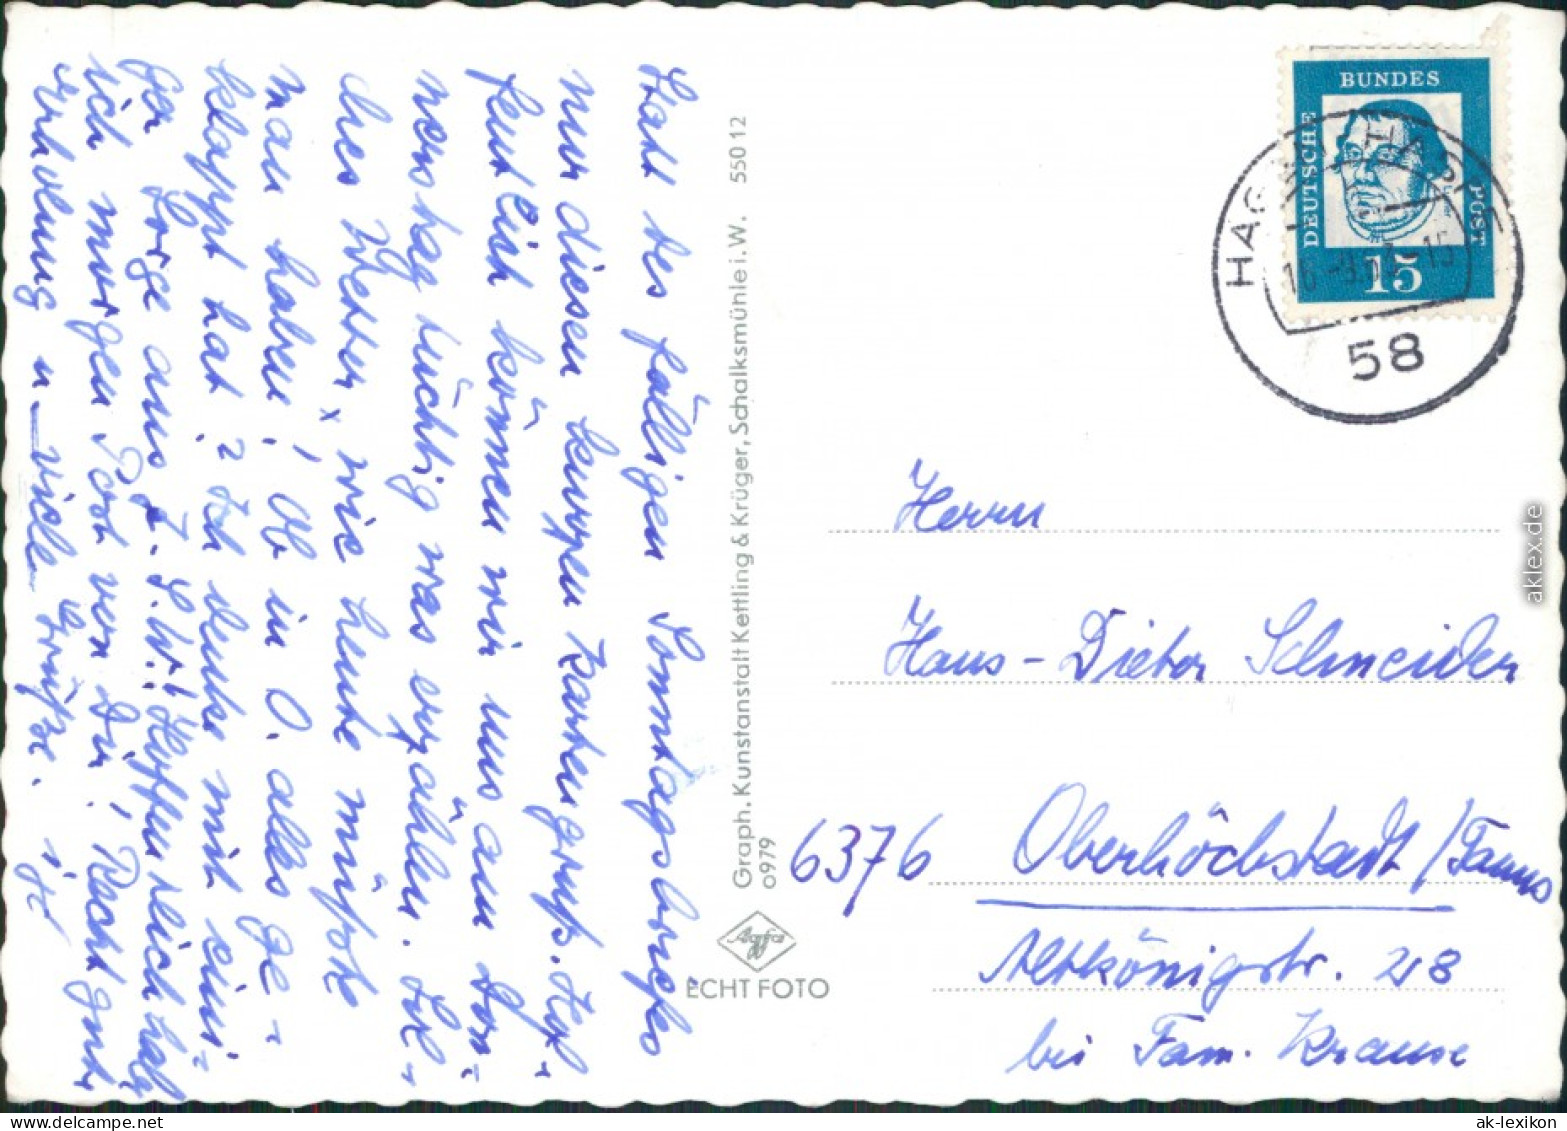 Statt des fälligen Sonntagsbriefes
nur diesen kurzen Kartengruß. Hof-
fentlich können wir uns am Don-
nerstag tüchtig was erzählen. Sol-
ches Wetter, wie heute müßte
man haben! Ob in O. alles ge-
klappt hat? Ich denke mit eini-
ger Sorge an
ich morgen Post von Dir! Recht gute
Erholung u. viele Grüße.
Graph. Kunstanstalt Kettling & Krüger, Schalksmühle i. W. 550 12
0979
Agfa
ECHT FOTO
DEUTSCHE BUNDESPOST
15
HAGEN-HASPE
58
Herrn
Hans-Dieter Schneider
6376 Oberhöchstadt/Taunus
Altkönigstr. 28
bei Fam. Krause
aklex.de
ak-lexikon